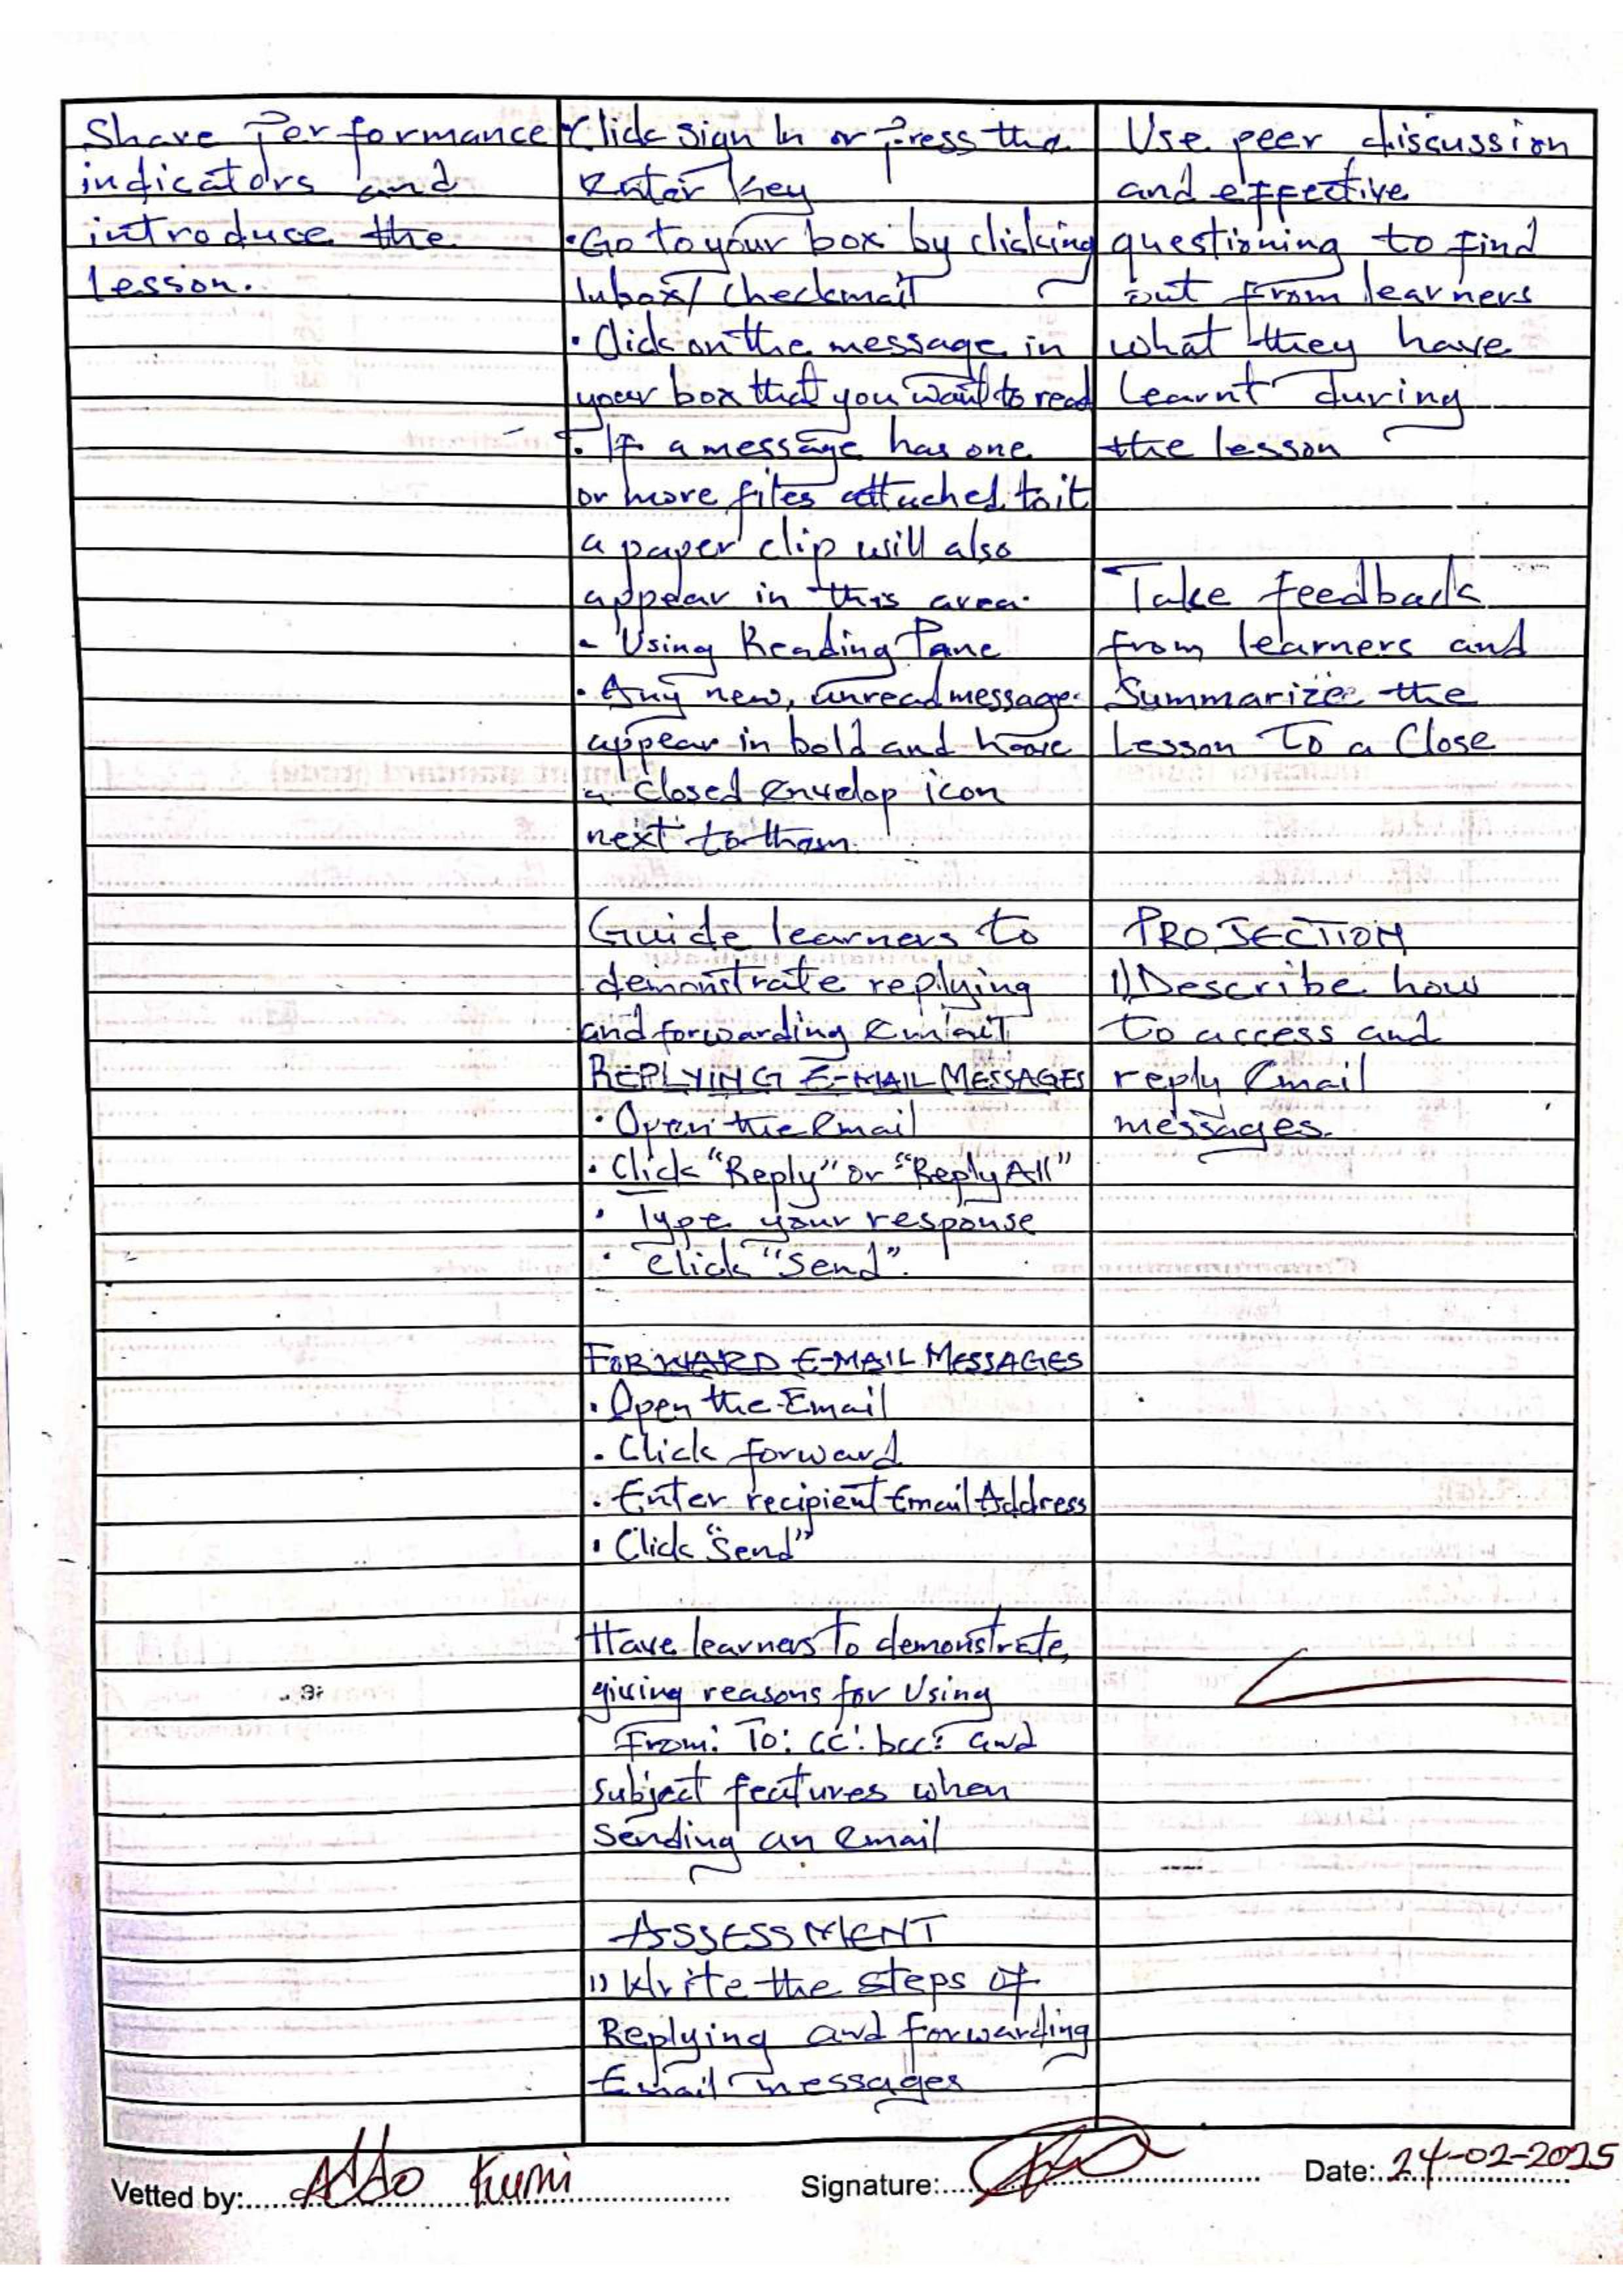 Share Performance
indicators and
introduce the
Lesson.
• Click sign In or Press the
Enter Key
• Go to your box by clicking
Inbox/ checkmail
• Click on the message in
your box that you want to read
• If a message has one
or more files attached to it
a paper clip will also
appear in this area.
- Using Reading Pane
• Any new, unread message
appear in bold and have
a closed envelop icon
next to them.
Guide learners to
demonstrate replying
and forwarding Email
REPLYING E-MAIL MESSAGES
• Open the Email
• Click "Reply" or "Reply All"
• Type your response
• Click "Send".
FORWARD E-MAIL MESSAGES
• Open the Email
• Click forward
• Enter recipient Email Address
• Click "Send"
Have learners to demonstrate,
giving reasons for Using
From: To: cc: bcc: and
Subject features when
Sending an email
ASSESSMENT
1) Write the steps of
Replying and forwarding
Email messages
Use peer discussion
and effective
questioning to find
out from learners
what they have
learnt during
the lesson
Take feedback
from learners and
Summarize the
Lesson To a Close
PROJECTION
1) Describe how
to access and
reply Email
messages.
Vetted by: Addo Kumi
Signature:
Date: 24-02-2025